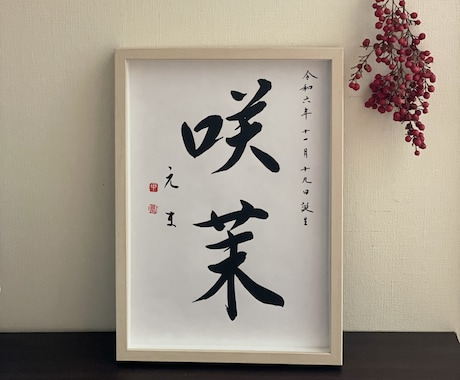 令和六年 十一月 十九日誕生
咲茉
元